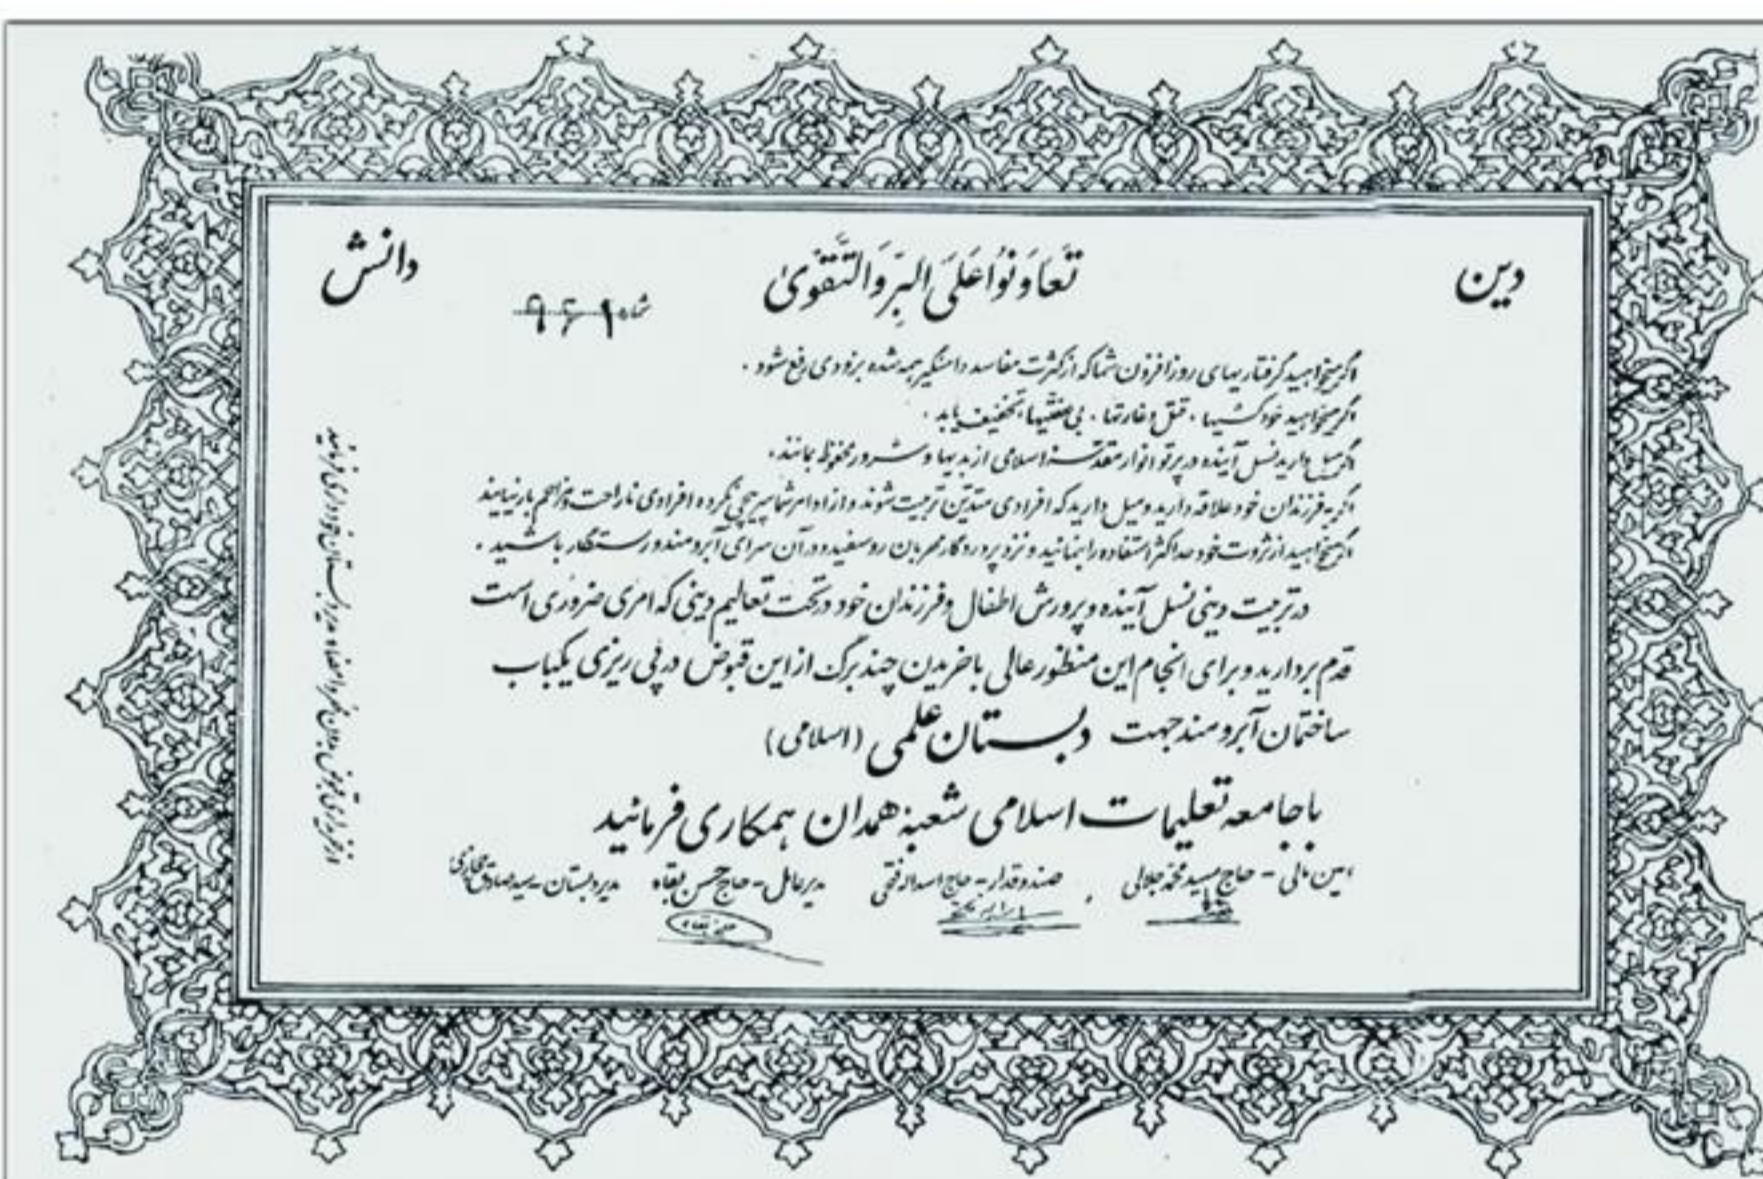 دین
تَعَاوَنُوا عَلَی البِرِّ وَالتَّقوی
دانش
شماره ۹۶۱
اگر میخواهید گرفتاریهای روزافزون شما که از کثرت مفاسد دامنگیر همه شده بزودی رفع شود .
اگر میخواهید خودکشیها . قتل و غارتها . بی عفتیها تخفیف یابد .
اگر میل دارید نسل آینده در پرتو انوار مقدسه اسلامی از بدیها و شرور محفوظ بمانند .
اگر به فرزندان خود علاقه دارید و میل دارید که افرادی متدین تربیت شوند و از اوامر شما سرپیچی نکرده افرادی ناراحت و مزاحم بار نیایند
اگر میخواهید از ثروت خود حداکثر استفاده را بنمائید و نزد پروردگار مهربان روسفید و در آن سرای آبرومند و رستگار باشید .
در تربیت دینی نسل آینده و پرورش اطفال و فرزندان خود در تحت تعالیم دینی که امری ضروری است
قدم بردارید و برای انجام این منظور عالی با خریدن چند برگ از این قبوض در پی ریزی یکباب
ساختمان آبرومند جهت دبستان علمی (اسلامی)
با جامعه تعلیمات اسلامی شعبهٔ همدان همکاری فرمائید
امین مالی - حاج سید محمد جلالی
صندوقدار - حاج اسداله فتحی
مدیر عامل - حاج حسن بقاء
مدیر دبستان - سید صادق
از خریداری قبوض بدون مهر و امضاء مدیر دبستان خودداری فرمائید